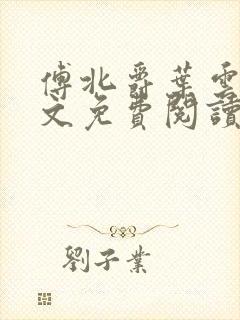 傅北爵葉雲
文免費閱讀
劉子業